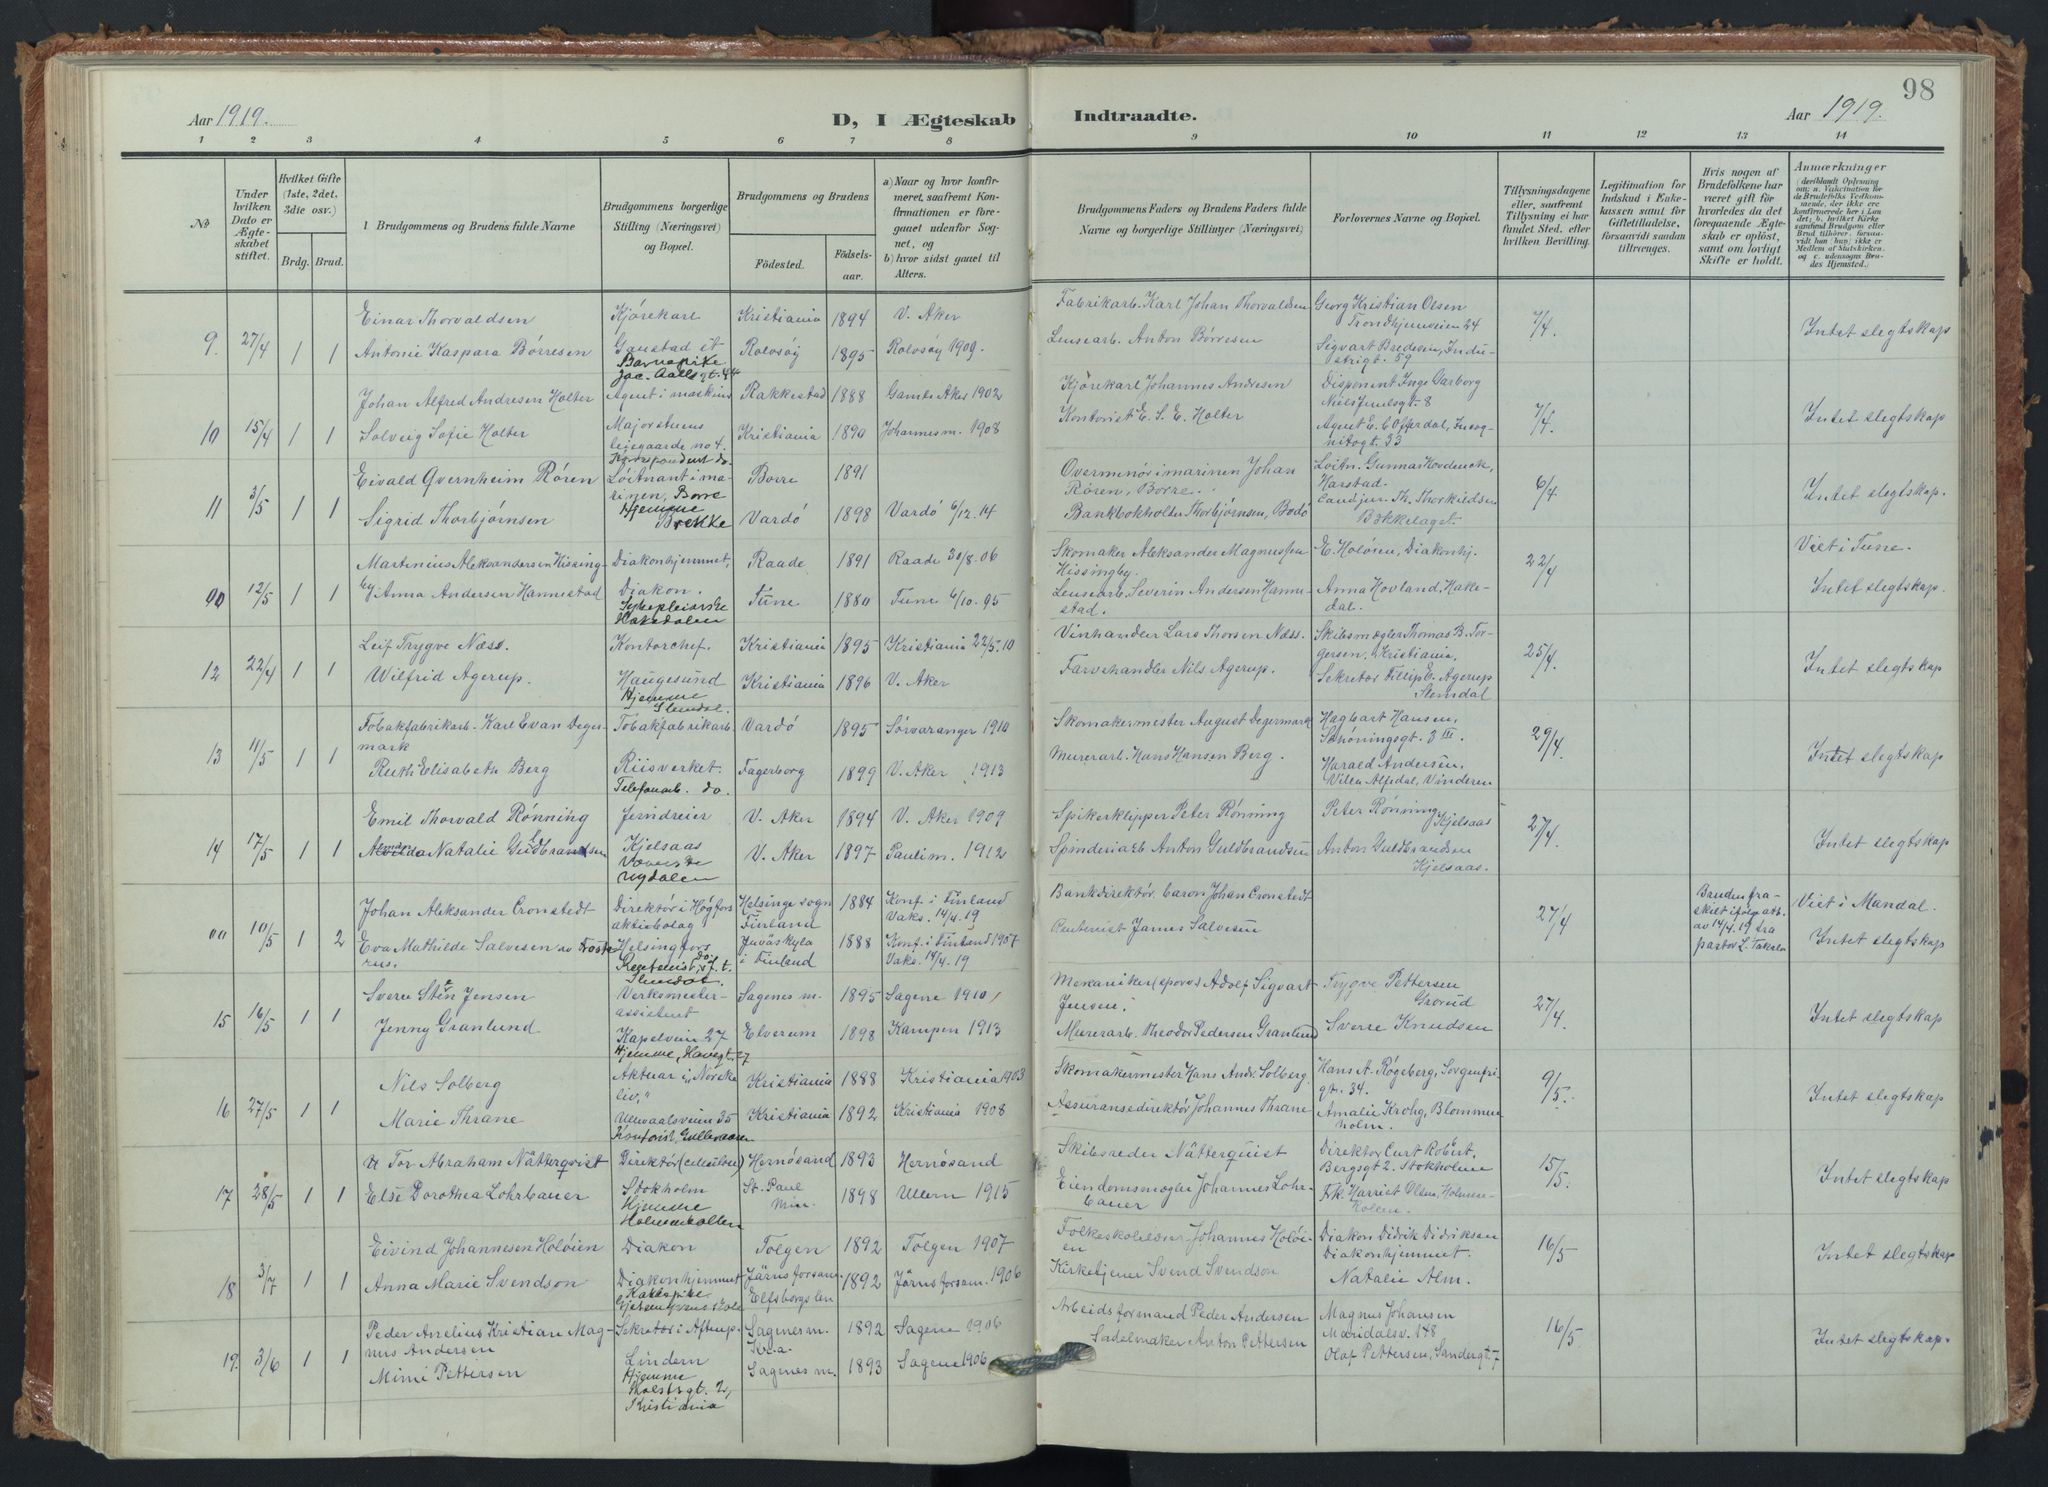 98
Aar 1919. D, I Ægteskab Indtraadte. Aar 1919.
1 2 3 4 5 6 7 8 9 10 11 12 13 14
No
Under hvilken Dato er Ægteskabet stiftet.
Hvilket Gifte (1ste, 2det, 3die osv.)
Brdg. Brud.
Brudgommens og Brudens fulde Navne
Brudgommens borgerlige Stilling (Næringsvei) og Bopæl.
Brudgommens og Brudens
Fødested. Fødselsaar.
a) Naar og hvor konfirmeret, saafremt Konfirmationen er foregaaet udenfor Sognet, og
b) hvor sidst gaaet til Alters.
Brudgommens Faders og Brudens Faders fulde Navne og borgerlige Stillinger (Næringsvei)
Forlovernes Navne og Bopæl.
Tillysningsdagene eller, saafremt Tillysning ei har fundet Sted, efter hvilken Bevilling.
Legitimation for Indskud i Enkekassen samt for Giftetilladelse, forsaavidt saadan tiltrænges.
Hvis nogen af Brudefolkene har været gift før hvorledes da det foregaaende Ægteskab er opløst, samt om lovligt Skifte er holdt.
Anmærkninger
9. 27/4 1 1 Einar Thorvaldsen Kjørekarl Kristiania 1894 V. Aker Fabrikarb. Karl Johan Thorvaldsen Georg Kristian Olsen Trondhjemsveien 24 7/4. Intet slegtskap
Antonie Kaspara Børresen Gaustad st Barnepike Jac. Aalls gt. 44 Rolvsøy 1895 Rolvsøy 1909. Lensearb. Anton Børresen Sigvart Bredesen, Industrigt. 59
10 15/4 1 1 Johan Alfred Andresen Holter Agent i maskiner Rakkestad 1888 Gamle Aker 1902 Kjørekarl Johannes Andresen Disponent Inge Garborg Niels Juelsgt. 8 7/4. Intet slegtskap
Solveig Sofie Holter Majorstuens leiegaarde no 4. Kristiania 1890 Johannesm. 1908 Kontorist E. S. E. Holter Agent E. C. Offerdal, Incognitogt. 33
11 3/5 1 1 Eivald Qvernheim Røren Løitnant i marinen, Borre Borre 1891 Overminør i marinen Johan Røren, Borre. Løitn. Gunnar Hovdenak, Harstad. 6/4 Intet slegtskap.
Sigrid Thorbjørnsen Hjemme Brekke Vardø 1898 Vardø 6/12.14 Bankbokholder Thorbjørnsen, Bodø cand jur. Th. Thorkildsen Bækkelaget.
00 12/5 1 1 Martinius Aleksandersen Kissingby Diakonhjemmet, Diakon. Raade 1891 Raade 30/8.06 Skomaker Aleksander Magnussen Hissingby. E. Holøien, Diakonhj. 22/4 Viet i Tune.
Anna Andersen Hannestad Sykepleierske Hakedalen Tune 1880 Tune 6/10.95 Lensearb. Severin Andersen Hannestad. Anna Hovland, Hakedal. Intet slegtskap.
12 22/4 1 1 Leif Trygve Næss. Kontorchef. Haugesund Kristiania 1895 Kristiania 22/5.10 Vinhandler Lars Thorsen Næss. Skibsmægler Thomas B. Torgersen, Kristiania. 25/4. Intet slegtskap
Wilfrid Agerup. Hjemme Slemdal. Kristiania 1896 V. Aker Farvehandler Nils Agerup. Sekretær Fillip E. Agerup Slemdal
13 11/5 1 1 Tobakfabrikarb. Karl Evan Degermark Tobakfabrikarb. Vardø 1895 Sørvaranger 1910 Skomakermester August Degermark Hagbart Hansen, Schøningsgt. 3 III. 29/4 Intet slegtskap
Ruth Elisabeth Berg Riisverket. Telefonarb. do. Fagerborg 1899 V. Aker 1913 Murerarb. Hans Hansen Berg. Harald Andersen, Villa Alfedal, Vinderen
14 17/5 1 1 Emil Thorvald Rønning Jerndreier Kjelsaas V. Aker 1894 V. Aker 1909 Spikerklipper Peter Rønning Peter Rønning Kjelsaas 27/4 Intet slegtskap
Natalie Guldbrandsen Væverske Nydalen V. Aker 1897 Paulim. 1912 Spinderiarb. Anton Guldbrandsen Anton Guldbrandsen Kjelsaas.
00 10/5 1 2 Johan Aleksander Cronstedt Direktør i Högfors aktiebolag Helsingfors Helsinge sogn Finland 1884 Konf. i Finland Vaks. 14/4.19 Bankdirektør, baron Johan Cronstedt 27/4 Bruden fraskilt ifølge att. av 14/4.19 fra pastor L. Takala Viet i Mandal.
Eva Mathilde Salvesen av Frosterus. Slemdal. Jyväskyla i Finland 1888 Konf. i Finland 1907 Vaks. 14/4.19 Rentenist James Salvesen Intet slegtskap
15 16/5 1 1 Sverre Sten Jensen Verksmesterassistent Kapelveien 27 Sagenes m. 1895 Sagene 1910 Mekaniker (sporv.) Adolf Sigvart Jensen, Trygve Pettersen Grorud 27/4 Intet slegtskap
Jenny Granlund Hjemme, Havegt. 27 Elverum 1898 Kampen 1913 Murerarb. Theodor Pedersen Granlund Sverre Knudsen
16 27/5 1 1 Nils Solberg Aktuar i „Norske liv," Ullevaalsveien 35 Kristiania 1888 Kristiania 1903 Skomakermester Hans Andr. Solberg. Hans A. Røgeberg, Sorgenfrigt. 34. 9/5. Intet slegtskap
Marie Thrane Kontorist, Kristiania 1892 Kristiania 1908 Assuransedirektør Johannes Thrane Amalie Krohg, Blommenholm.
17 28/5 1 1 Tor Abraham Nätterqvist Direktør (cellulose) Stokholm Hernøsand 1893 Hernøsand Skibsreder Nätterquist Direktør Curt Robert, Bergsgt 2. Stokholm 15/5. Intet slegtskap
Else Dorothea Lohrbauer Hjemme Holmenkollen St. Paul Min. 1898 Ullern 1915 Eiendomsmægler Johannes Lohrbauer Frk. Harriet Olsen, Holmenkollen.
18 3/7 1 1 Eivind Johannesen Holøien Diakon Diakonhjemmet Tolgen 1892 Tolgen 1907 Johannes Holøien Diakon Didrik Didriksen Diakonhjemmet. 16/5 Intet slegtskap
Anna Marie Svendson Kokkepike Järns forsam. Elfsborgs len 1892 Järns forsam. 1906 Kirketjener Svend Svendson Natalie Alm.
19. 3/6 1 1 Peder Anelius Kristian Magnus Andersen Sekretær i Aftenp. Lindern Sagenes m. Kr.a. 1892 Sagene 1906 Arbeidsformand Peder Andersen Magnus Johansen Maridalsv. 148 16/5 Intet slegtskap.
Mimi Pettersen Hjemme gt. 2, Kristiania Sagenes m. 1893 Sagene 1906 Sadelmaker Anton Pettersen Olaf Pettersen, Sandergt. 7